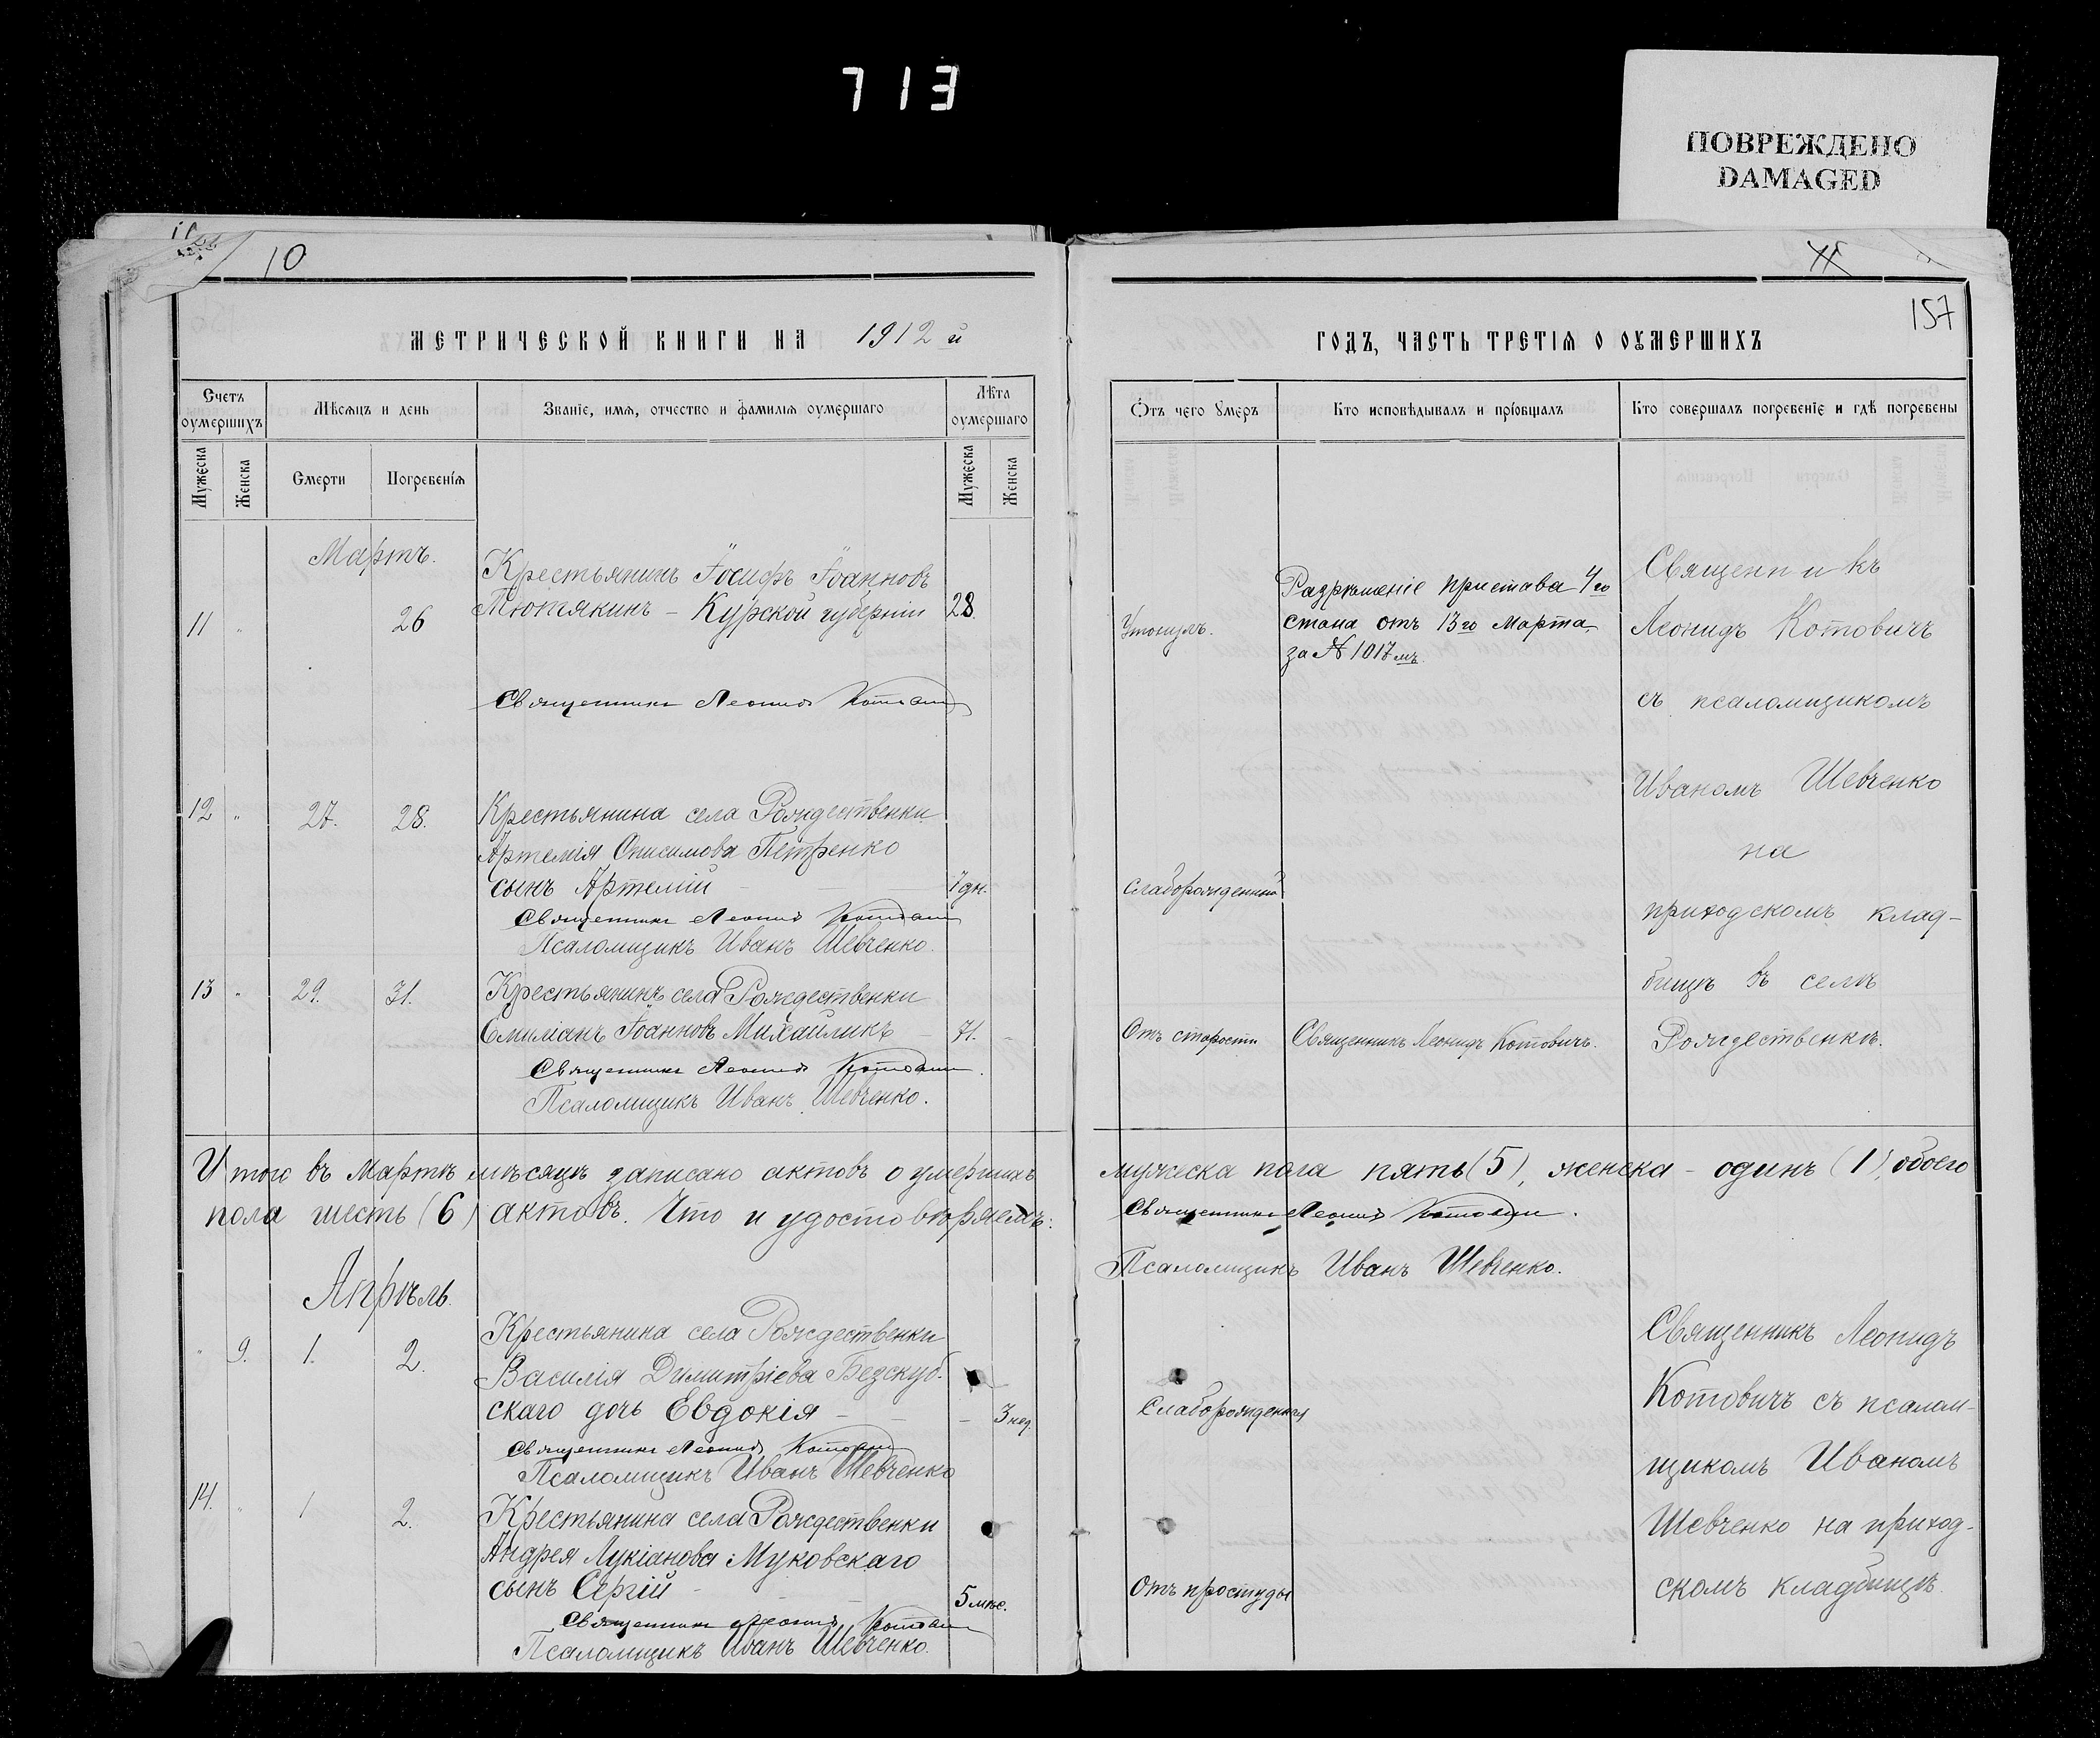 713
ПОВРЕЖДЕНО
DAMAGED
10
157
МЕТРИЧЕСКОЙ КНИГИ НА 1912 й
ГОДЪ, ЧАСТЬ ТРЕТІѦ О ОУМЕРШИХЪ
Счетъ оумершихъ
Мѣсѧцъ и день
Званіе, имѧ, отчество и фамиліѧ оумершаго
Лѣта оумершаго
Мужеска
Женска
Смерти
Погребеніѧ
Мужеска
Женска
Отъ чего умеръ
Кто исповѣдывалъ и пріобщалъ
Кто совершалъ погребеніе и гдѣ погребены
Мартъ.
11 " 26
Крестьянинъ Іосифъ Іоанновъ
Тютякинъ - Курской губерніи 28
Священникъ Леонидъ Котович
Утонулъ.
Разрѣшеніе пристава 4го
стана отъ 13го Марта
за № 1017мъ
12 " 27. 28.
Крестьянина села Рождественки
Артемія Онисимова Петренко
сынъ Артемій 7 дн.
Священникъ Леонидъ Котович
Псаломщикъ Иванъ Шевченко.
Слаборожденный
13 " 29. 31.
Крестьянинъ села Рождественки
Емиліанъ Іоанновъ Михайликъ 71.
Священникъ Леонидъ Котович
Псаломщикъ Иванъ Шевченко.
Отъ старости
Священникъ Леонидъ Котовичъ.
Священникъ
Леонидъ Котовичъ
съ псаломщикомъ
Иваномъ Шевченко
на
приходскомъ клад-
бищѣ въ селѣ
Рождественкѣ.
Итого въ Мартѣ мѣсяцѣ записано актовъ о умершихъ мужеска пола пять (5), женска - одинъ (1), обоего
пола шесть (6) актовъ. Что и удостовѣряемъ:
Священникъ Леонидъ Котович.
Псаломщикъ Иванъ Шевченко.
Апрѣль.
" 9. 1. 2.
Крестьянина села Рождественки
Василія Димитріева Безскуб-
скаго дочь Евдокія - 3 нед.
Священникъ Леонидъ Котович
Псаломщикъ Иванъ Шевченко
Слаборожденная
14. " 1 2.
Крестьянина села Рождественки
Андрея Лукіанова Муковскаго
сынъ Сергій 5 мѣс.
Священникъ Леонидъ Котович
Псаломщикъ Иванъ Шевченко.
Отъ простуды
Священникъ Леонидъ
Котовичъ съ псалом-
щикомъ Иваномъ
Шевченко на приход-
скомъ кладбищѣ.